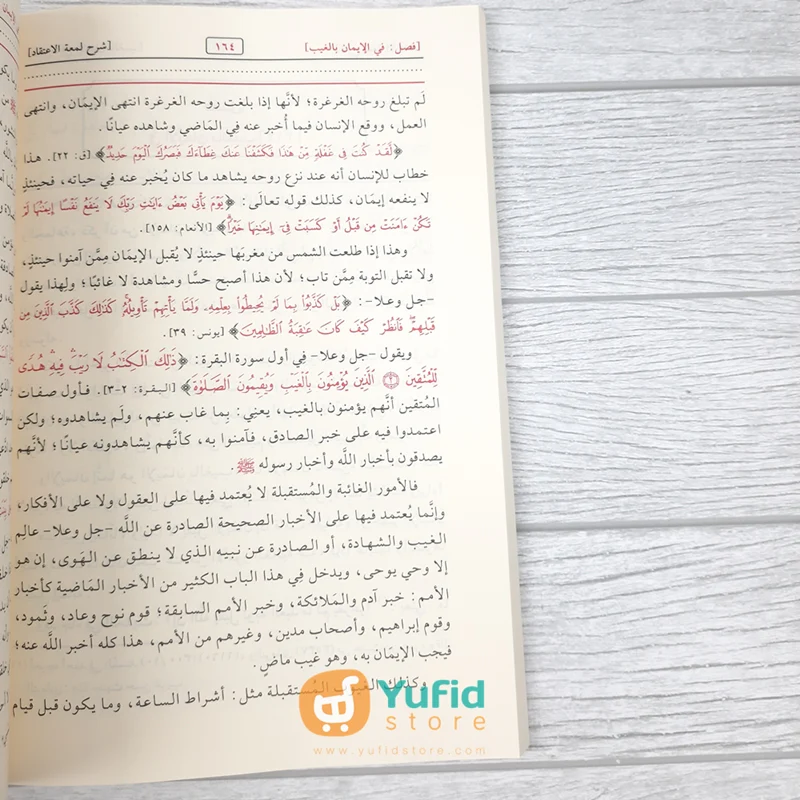 [فصل: في الإيمان بالغيب] ١٦٤ [شرح لمعة الاعتقاد]
لَم تبلغ روحه الغرغرة؛ لأنَّها إذا بلغت روحه الغرغرة انتهى الإيمَان، وانتهى
العمل، ووقع الإنسان فيما أُخبر عنه فِي المَاضي وشاهده عيانًا.
﴿لَّقَدْ كُنتَ فِي غَفْلَةٍ مِّنْ هَٰذَا فَكَشَفْنَا عَنكَ غِطَآءَكَ فَبَصَرُكَ ٱلْيَوْمَ حَدِيدٌ﴾ [ق: ٢٢]. هذا
خطاب للإنسان أنه عند نزع روحه يشاهد ما كان يُخبر عنه فِي حياته، فحينئذٍ
لا ينفعه إيمَان، كذلك قوله تعالَى: ﴿يَوْمَ يَأْتِي بَعْضُ ءَايَٰتِ رَبِّكَ لَا يَنفَعُ نَفْسًا إِيمَٰنُهَا لَمْ
تَكُنْ ءَامَنَتْ مِن قَبْلُ أَوْ كَسَبَتْ فِيٓ إِيمَٰنِهَا خَيْرًا﴾ [الأنعام: ١٥٨].
وهذا إذا طلعت الشمس من مغربَها حينئذٍ لا يُقبل الإيمَان مِمَّن آمنوا حينئذٍ،
ولا تقبل التوبة مِمَّن تاب؛ لأن هذا أصبح حسًّا ومشاهدة لا غائبًا؛ ولِهذا يقول
-جل وعلا-: ﴿بَلْ كَذَّبُوا۟ بِمَا لَمْ يُحِيطُوا۟ بِعِلْمِهِۦ وَلَمَّا يَأْتِهِمْ تَأْوِيلُهُۥ كَذَٰلِكَ كَذَّبَ ٱلَّذِينَ مِن
قَبْلِهِمْ فَٱنظُرْ كَيْفَ كَانَ عَٰقِبَةُ ٱلظَّٰلِمِينَ﴾ [يونس: ٣٩].
ويقول -جل وعلا- فِي أول سورة البقرة: ﴿ذَٰلِكَ ٱلْكِتَٰبُ لَا رَيْبَ فِيهِ هُدًى
لِّلْمُتَّقِينَ ۝٢ ٱلَّذِينَ يُؤْمِنُونَ بِٱلْغَيْبِ وَيُقِيمُونَ ٱلصَّلَوٰةَ﴾ [البقرة: ٢-٣]. فأول صفات
المُتقين أنَّهم يؤمنون بالغيب، يعنِي: بِما غاب عنهم، ولَم يشاهدوه؛ ولكن
اعتمدوا فيه على خبر الصادق، فآمنوا به، كأنَّهم يشاهدونه عيانًا؛ لأنَّهم
يصدقون بأخبار اللَّه وأخبار رسوله ﷺ.
فالأمور الغائبة والمُستقبلة لا يُعتمد فيها على العقول ولا على الأفكار،
وإنَّما يُعتمد فيها على الأخبار الصحيحة الصادرة عن اللَّه -جل وعلا- عالِم
الغيب والشهادة، أو الصادرة عن نبيه الذي لا ينطق عن الهَوى، إن هو
إلا وحي يوحى، ويدخل فِي هذا الباب الكثير من الأخبار المَاضية كأخبار
الأمم: خبر آدم والمَلائكة، وخبر الأمم السابقة؛ قوم نوح وعاد، وثَمود،
وقوم إبراهيم، وأصحاب مدين، وغيرهم من الأمم، هذا كله أخبر اللَّه عنه؛
فيجب الإيمَان به، وهو غيب ماضٍ.
وكذلك الغيوب المُستقبلة مثل: أشراط الساعة، وما يكون قبل قيام
Yufid
store
www.yufidstore.com